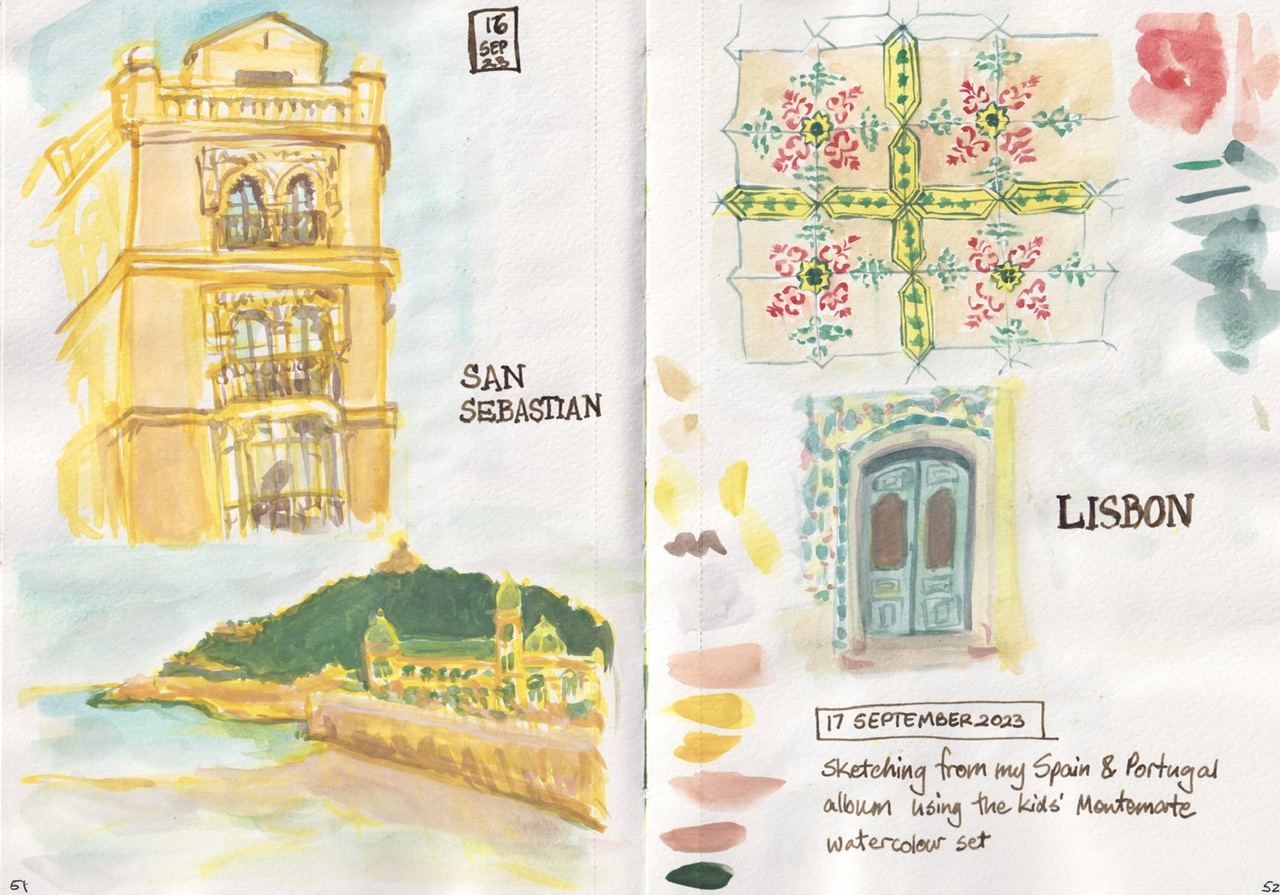 16
SEP
23
SAN
SEBASTIAN
51
LISBON
17 SEPTEMBER 2023
Sketching from my Spain & Portugal
album using the kids' Montemarte
watercolour set
52